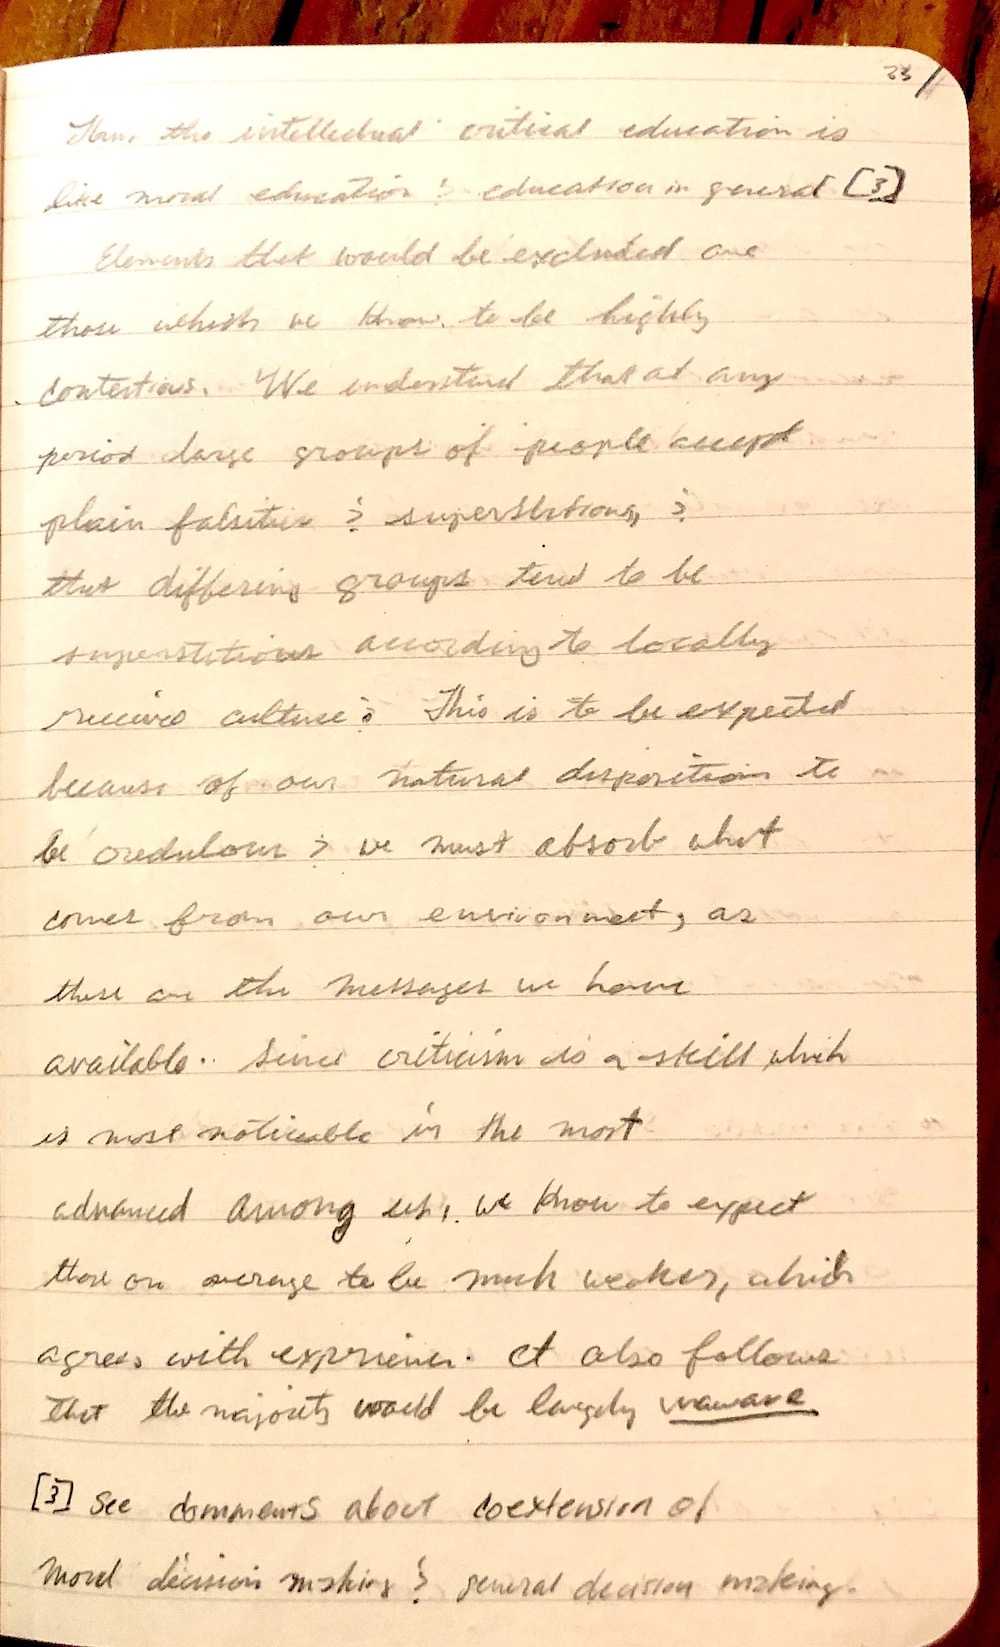 23
Thus the intellectual critical education is
like moral education & education in general [3]
Elements that would be excluded are
those which we know to be highly
contentious. We understand that at any
period large groups of people accept
plain falsities & superstitions, &
that differing groups tend to be
superstitious according to locally
received culture. This is to be expected
because of our natural disposition to
be credulous & we must absorb what
comes from our environment, as
these are the messages we have
available. Since criticism is a skill which
is most noticeable in the most
advanced among us, we know to expect
those on average to be much weaker, which
agrees with experience. It also follows
that the majority would be largely unaware
[3] See comments about coextension of
moral decision making & general decision making.